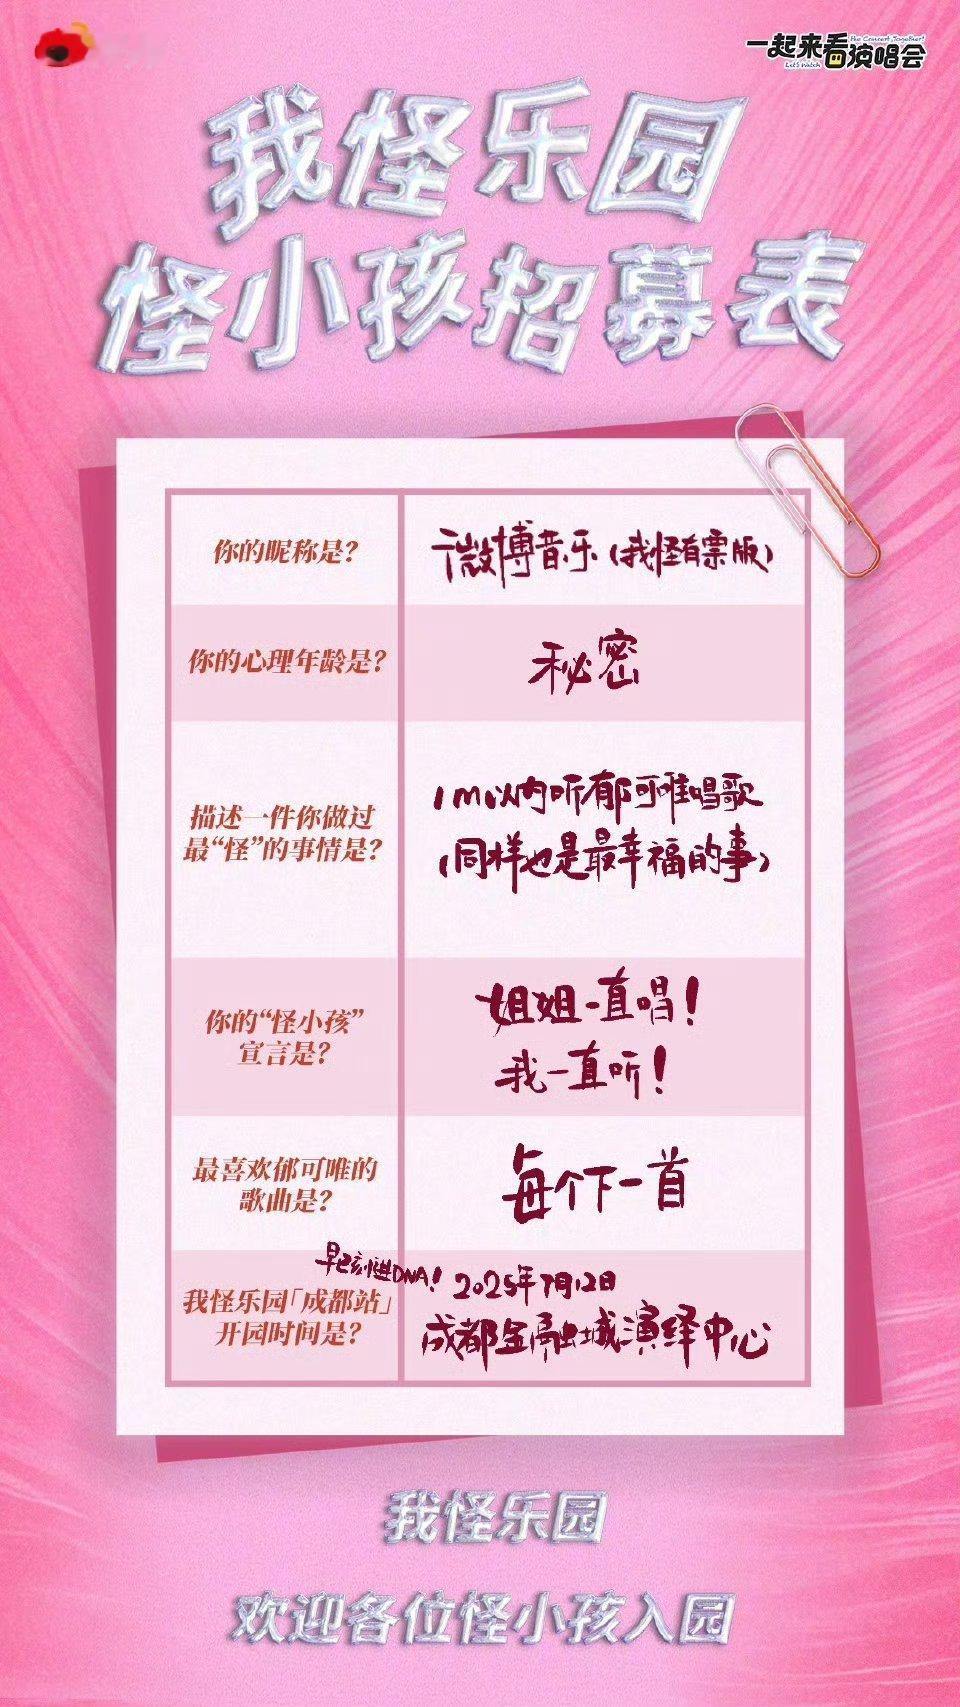 一起来看演唱会
The Concert Together!
Let's Watch
我怪乐园
怪小孩招募表
你的昵称是？
微博音乐（我怪有票版）
你的心理年龄是？
秘密
描述一件你做过
最“怪”的事情是？
1m以内听郁可唯唱歌
（同样也是最幸福的事）
你的“怪小孩”
宣言是？
姐姐一直唱！
我一直听！
最喜欢郁可唯的
歌曲是？
每个下一首
我怪乐园「成都站」
开园时间是？
早已刻进DNA！
2025年7月12日
成都金融城演绎中心
我怪乐园
欢迎各位怪小孩入园